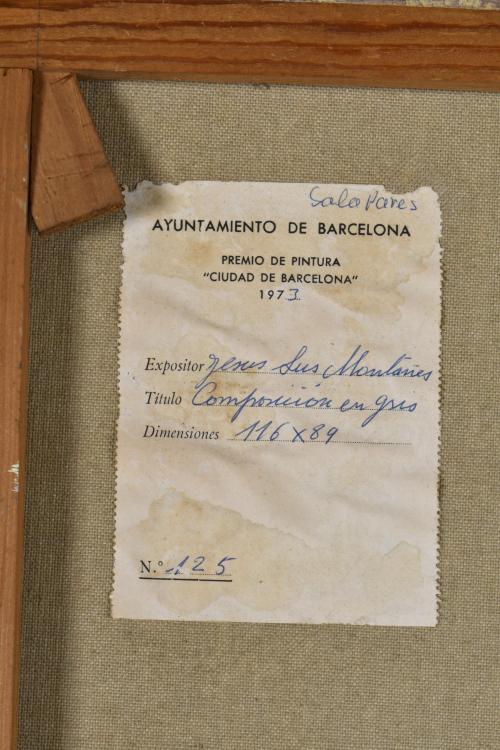 Sala Pares
AYUNTAMIENTO DE BARCELONA
PREMIO DE PINTURA
"CIUDAD DE BARCELONA"
1973
Expositor Jesus Sus Montañes
Título Composición en gris
Dimensiones 116 x 89
N.º 125